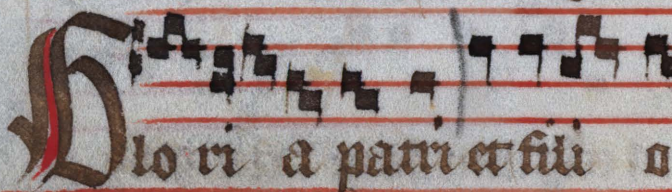 Glo ri a patri et fili o